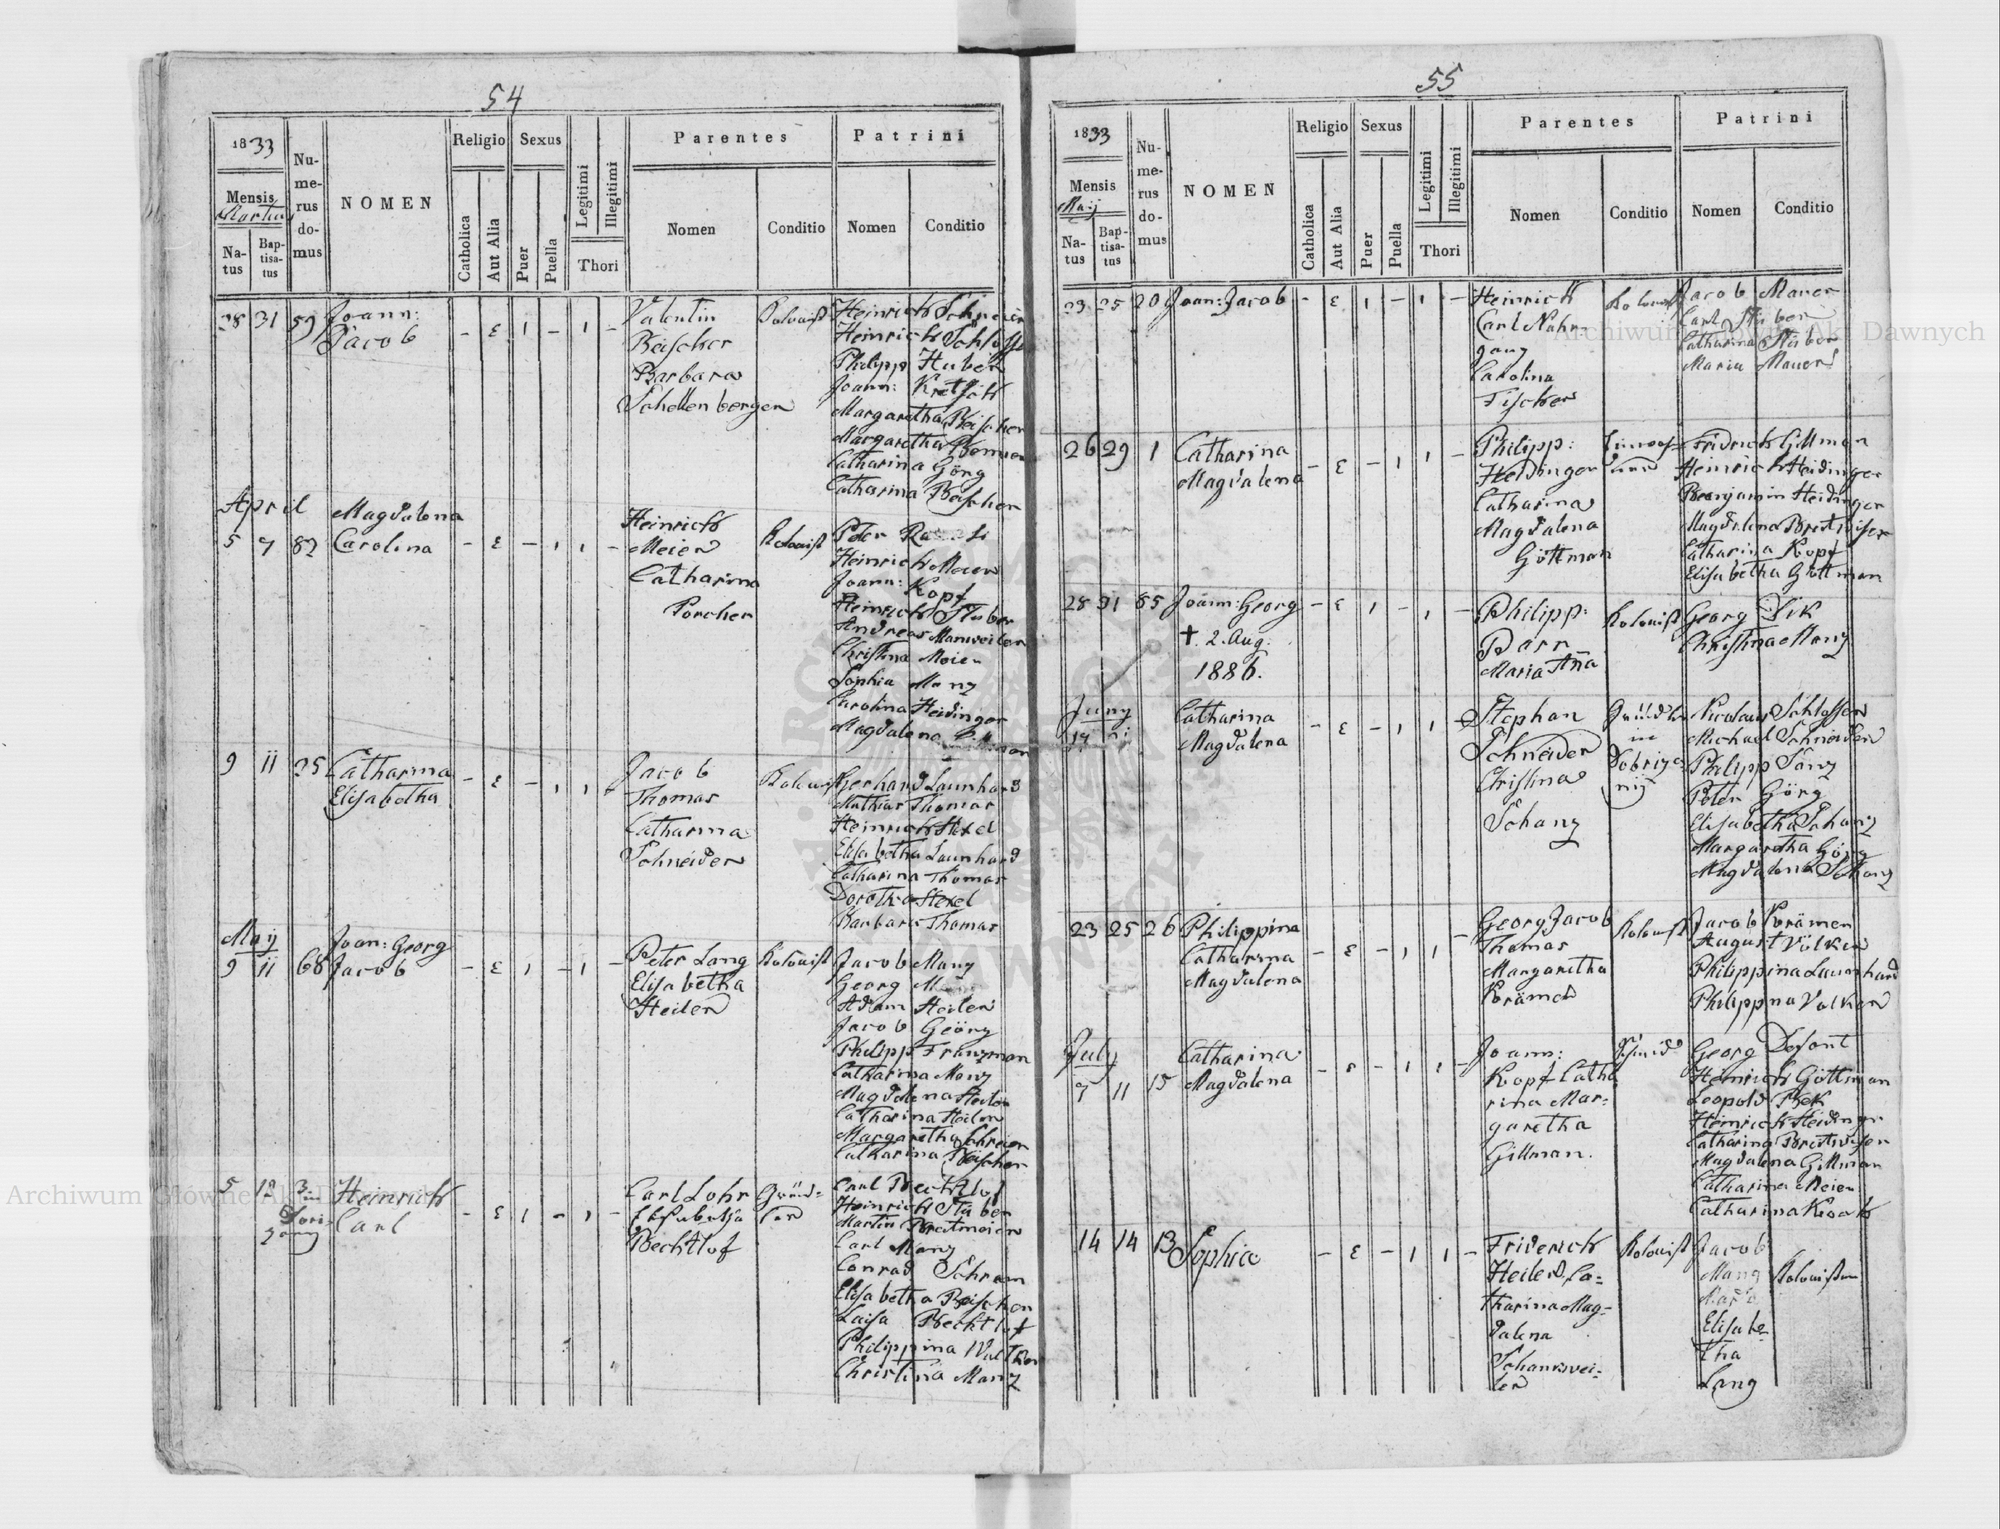 54
1833
Mensis
Martius
Natus
Baptisatus
Numerus domus
NOMEN
Religio
Catholica
Aut Alia
Sexus
Puer
Puella
Legitimi
Illegitimi
Thori
Parentes
Nomen
Conditio
Patrini
Nomen
Conditio
28 31 59 Joann:
Jacob
- ε 1 - 1 -
Valentin
Beischer
Barbara
Schellenberger
Kolonist
Heinrich
Heinrich Schlosser
Philipp Huber
Joann:
Margaretha Beischer
Margaretha
Catharina Görg
Catharina Beischer
April
5 7 82
Magdalena
Carolina
- ε - 1 1 -
Heinrich
Meier
Catharina
Porcher
Kolonist
Peter
Heinrich Meier
Joann: Kopf
Heinrich Stuber
Andreas Manweiler
Christina Meier
Sophia Manz
Carolina Heidinger
Magdalena
9 11 35 Catharina
Elisabetha
- ε - 1 1
Jacob
Thomas
Catharina
Schneider
Kolonist
Gerhard Launhard
Mathias Thomas
Heinrich
Elisabetha Launhard
Catharina Thomas
Dorothea
Barbara Thomas
Maij
9 11 68
Joan: Georg
Jacob
- ε 1 - 1 -
Peter Lang
Elisabetha
Heiler
Kolonist
Jacob Manz
Georg
Adam Heiler
Jacob Geörg
Philipp Franzman
Catharina Manz
Magdalena Heiler
Catharina Heiler
Margaretha Schreier
Catharina Beischer
5 12 3
Heinrich
Carl
- ε 1 - 1 -
Carl Lohr
Elisabetha
Bechtlof
Gründ=
ler
Carl Bechtlof
Heinrich Stuber
Martin Bretmeier
Carl Manz
Conrad Schram
Elisabetha Beischer
Luisa Bechtlof
Philippina Walther
Christina Manz
55
1833
Mensis
Maij
Natus
Baptisatus
Numerus domus
NOMEN
Religio
Catholica
Aut Alia
Sexus
Puer
Puella
Legitimi
Illegitimi
Thori
Parentes
Nomen
Conditio
Patrini
Nomen
Conditio
23 25 20 Joan: Jacob
- ε 1 - 1 -
Heinrich
Carl Nahr
gang
Carolina
Fischer
Kolonist
Jacob Mauer
Carl Stuber
Catharina Stuber
Maria Mauer
26 29 1 Catharina
Magdalena
- ε - 1 1 -
Philipp:
Heidinger
Catharina
Magdalena
Göttman
Fridrich Gillman
Heinrich Heidinger
Benjamin Heidinger
Magdalena Bretwiser
Catharina Kopf
Elisabetha Göttman
28 31 65 Joann: Georg
† 2. Aug.
1886.
- ε 1 - 1 -
Philipp:
Dorr
Maria Aña
Kolonist
Georg Dik
Christina Manz
Juny
Catharina
Magdalena
- ε - 1 1 -
Stephan
Schneider
Christina
Schanz
Gründler
in
Dobrzanij
Nicolaus Schlosser
Michael Schneider
Philipp Sanz
Peter Görg
Elisabetha Schanz
Margaretha Görg
Magdalena Schanz
23 25 26 Philippina
Catharina
Magdalena
- ε - 1 1 -
Georg Jacob
Thomas
Margaretha
Krämer
Kolonist
Jacob Krämer
August Volker
Philippina Launhard
Philippina Volker
July
7 11 15
Catharina
Magdalena
- ε - 1 1 -
Joann:
Kopf Catha
rina Mar=
garetha
Gillman.
Schmid
Georg Desont
Heinrich Göttman
Leopold Bek
Heinrich Heidinger
Catharina Bretwiser
Magdalena Gillman
Catharina Meier
Catharina
14 14 13 Sophia
- ε - 1 1 -
Friderich
Heiler, Ca=
tharina Mag=
dalena
Schanwei=
ler
Kolonist
Jacob
Mang Kolonisten
Elisabe
tha
Lang
Archiwum Główne Akt Dawnych
Archiwum Główne Akt Dawnych